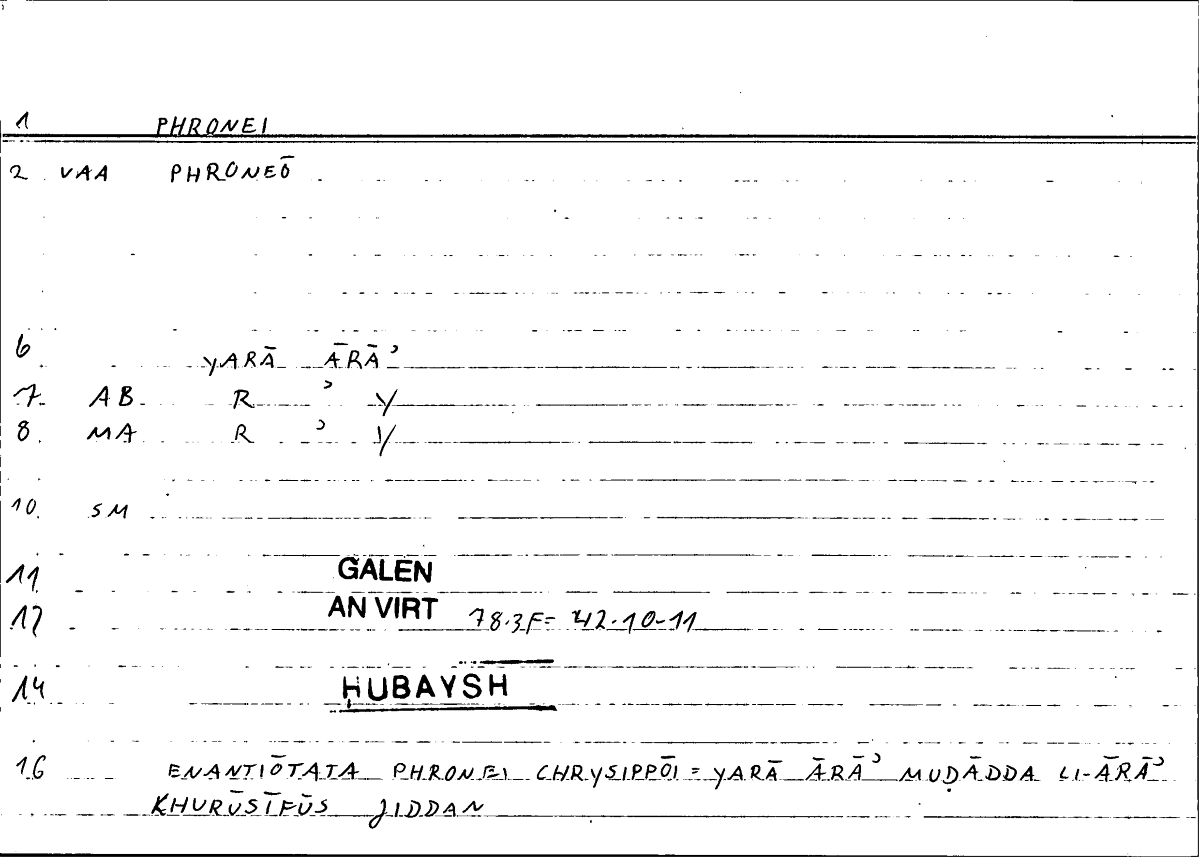 1 PHRONEI
2 VAA PHRONEŌ
6 YARĀ ĀRĀʾ
7 AB R ʾ Y
8 MA R ʾ Y
10 SM
11 GALEN
12 AN VIRT 78.3F= 42.10-11
14 ḤUBAYSH
16 ENANTIŌTATA PHRONEI CHRYSIPPŌI = YARĀ ĀRĀʾ MUḌĀDDA LI-ĀRĀʾ
KHURŪSĪFŪS JIDDAN